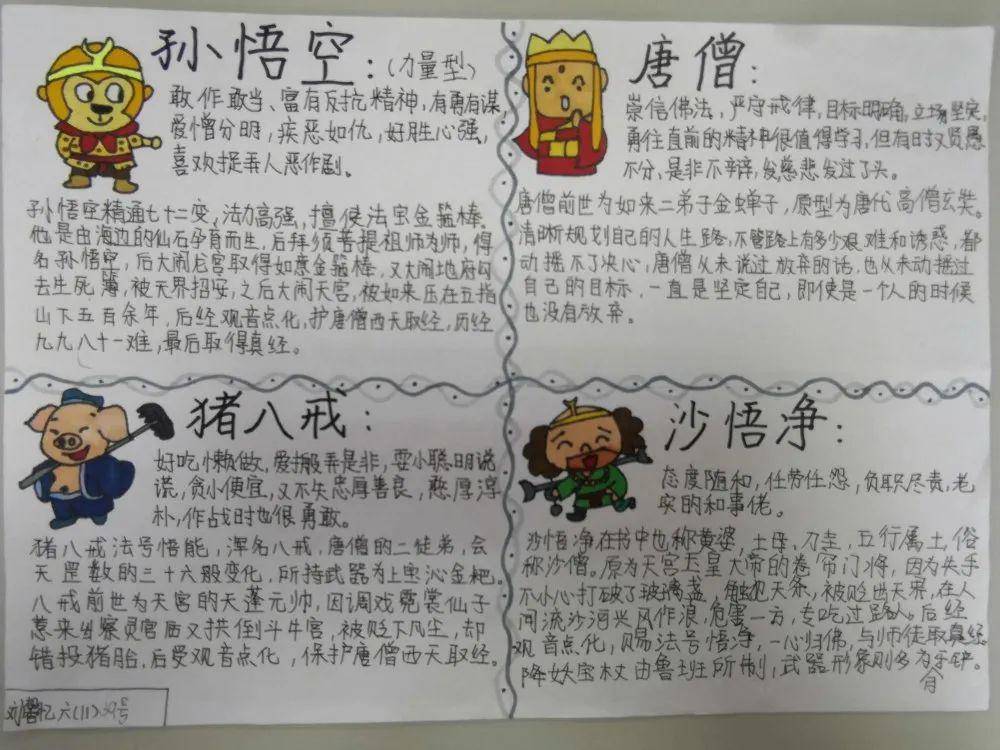 孙悟空：(力量型)
敢作敢当、富有反抗精神，有勇有谋，
爱憎分明，疾恶如仇，好胜心强，
喜欢捉弄人恶作剧。
孙悟空精通七十二变，法力高强，擅使法宝金箍棒。
他是由海边的仙石孕育而生，后拜须菩提祖师为师，得
名孙悟空，后大闹龙宫取得如意金箍棒，又大闹地府勾
去生死簿，被天界招安，之后大闹天宫，被如来压在五指
山下五百余年，后经观音点化，护唐僧西天取经，历经
九九八十一难，最后取得真经。
唐僧：
崇信佛法，严守戒律，目标明确，立场坚定，
勇往直前的精神很值得学习，但有时又贤愚
不分、是非不辩，发慈悲发过了头。
唐僧前世为如来二弟子金蝉子，原型为唐代高僧玄奘。
清晰规划自己的人生路，不管路上有多少艰难和诱惑，都
动摇不了决心，唐僧从未说过放弃的话，也从未动摇过
自己的目标，一直是坚定自己，即使是一个人的时候
也没有放弃。
猪八戒：
好吃懒做，爱搬弄是非，耍小聪明说
谎，贪小便宜，又不失忠厚善良，憨厚淳
朴，作战时也很勇敢。
猪八戒法号悟能，浑名八戒，唐僧的二徒弟，会
天罡数的三十六般变化，所持武器为上宝沁金耙。
八戒前世为天宫的天蓬元帅，因调戏霓裳仙子
惹来纠察灵官后又拱倒斗牛宫，被贬下凡尘，却
错投猪胎，后受观音点化，保护唐僧西天取经。
沙悟净：
态度随和，任劳任怨，负职尽责，老
实的和事佬。
沙悟净在书中也称黄婆，土母、刀圭，五行属土，俗
称沙僧。原为天宫玉皇大帝的卷帘门将，因为失手
不小心打破了玻璃盏，触犯天条，被贬出天界，在人
间流沙河兴风作浪，危害一方，专吃过路人。后经
观音点化，赐法号悟净，一心归佛，与师徒取真经。
降妖宝杖由鲁班所制，武器形象则多为月牙铲。
六(11)39号